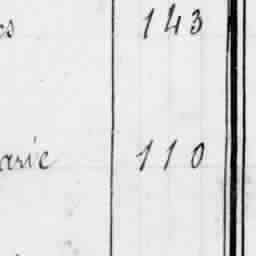 es 143
arie 110